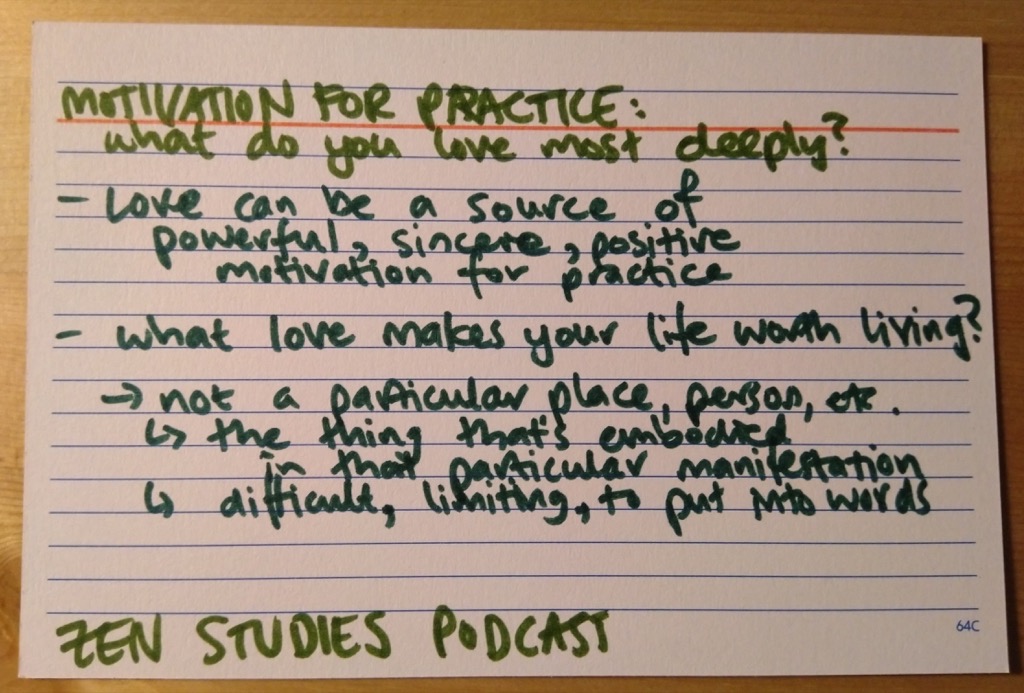 MOTIVATION FOR PRACTICE:
what do you love most deeply?
- Love can be a source of
powerful, sincere, positive
motivation for practice
- what love makes your life worth living?
→ not a particular place, person, etc.
↳ the thing that's embodied
in that particular manifestation
↳ difficult, limiting, to put into words
ZEN STUDIES PODCAST
64C